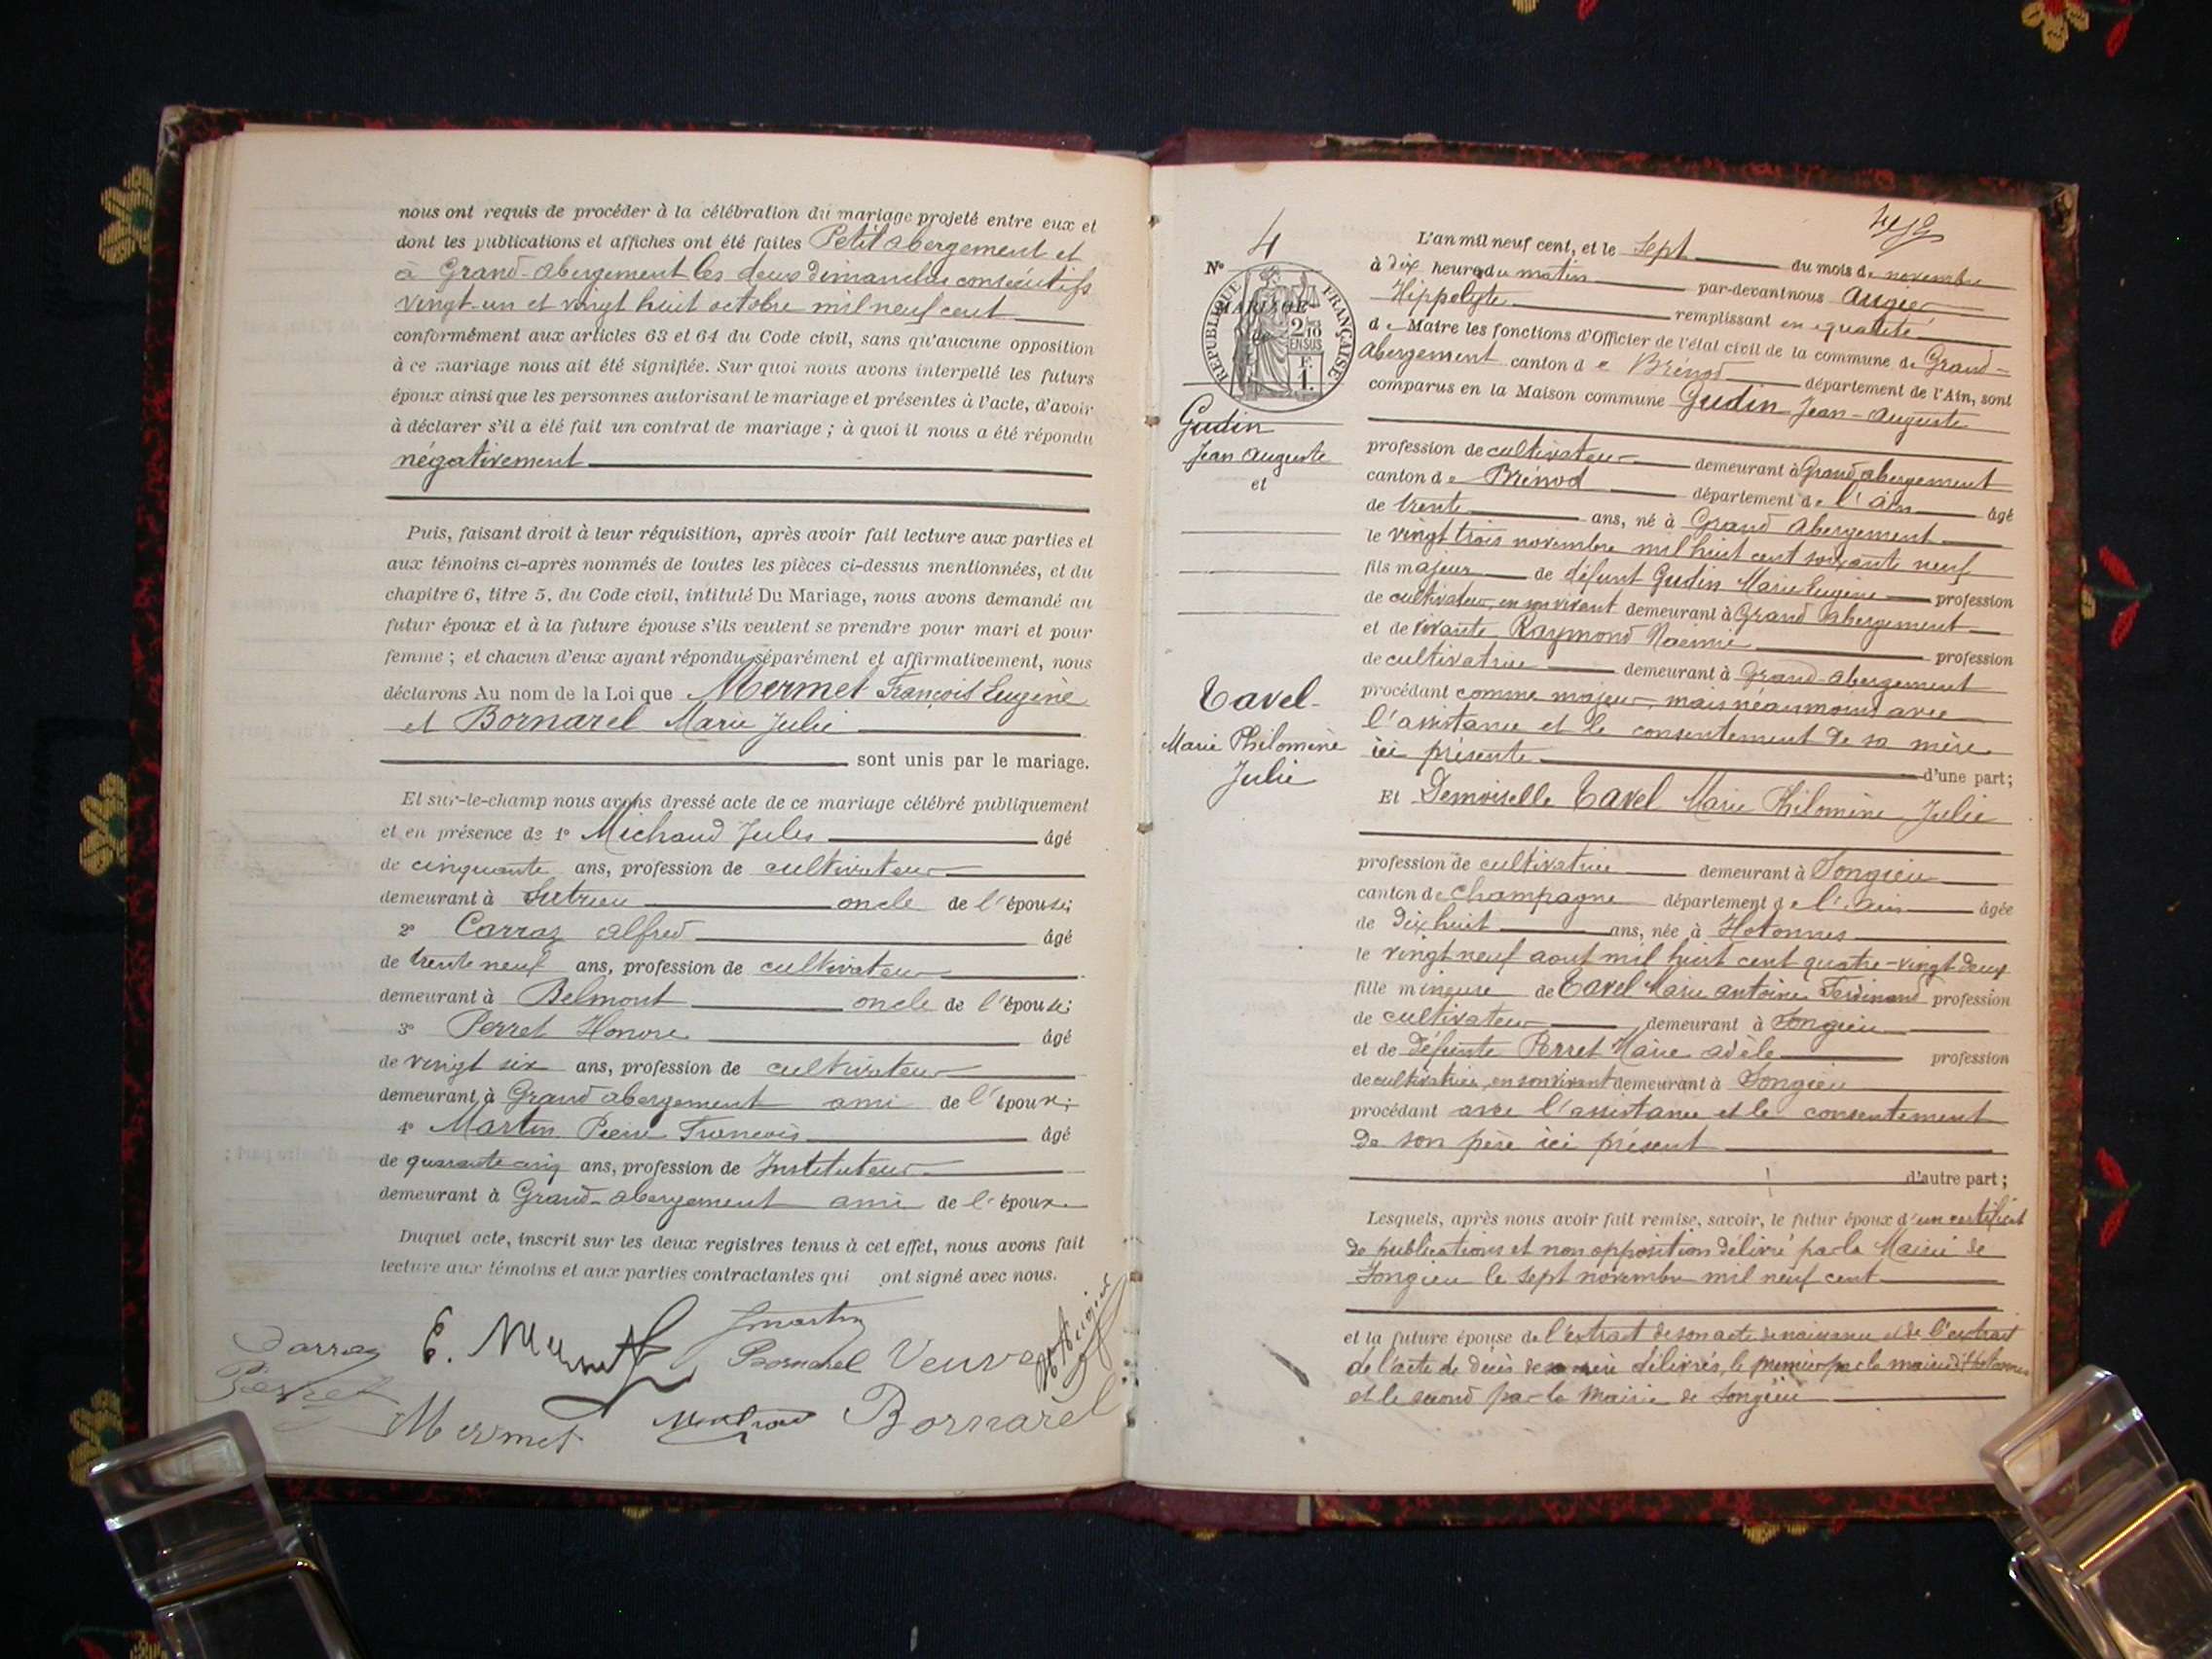 nous ont requis de procéder à la célébration du mariage projeté entre eux et
dont les publications et affiches ont été faites Petit abergement et
à Grand-abergement les deux dimanches consécutifs
vingt-un et vingt huit octobre mil neuf cent
conformément aux articles 63 et 64 du Code civil, sans qu'aucune opposition
à ce mariage nous ait été signifiée. Sur quoi nous avons interpellé les futurs
époux ainsi que les personnes autorisant le mariage et présentes à l'acte, d'avoir
à déclarer s'il a été fait un contrat de mariage ; à quoi il nous a été répondu
négativement
Puis, faisant droit à leur réquisition, après avoir fait lecture aux parties et
aux témoins ci-après nommés de toutes les pièces ci-dessus mentionnées, et du
chapitre 6, titre 5, du Code civil, intitulé Du Mariage, nous avons demandé au
futur époux et à la future épouse s'ils veulent se prendre pour mari et pour
femme ; et chacun d'eux ayant répondu séparément et affirmativement, nous
déclarons Au nom de la Loi que Mermet François Eugène
et Bornarel Marie Julie
sont unis par le mariage.
Et sur-le-champ nous avons dressé acte de ce mariage célébré publiquement
et en présence de 1° Michaud Jules âgé
de cinquante ans, profession de cultivateur
demeurant à Sutrieu oncle de l'épouse;
2° Carraz alfred âgé
de trente neuf ans, profession de cultivateur
demeurant à Belmont oncle de l'épouse;
3° Perret Honore âgé
de vingt six ans, profession de cultivateur
demeurant à Grand abergement ami de l'époux;
4° Martin Pierre François âgé
de quarante cinq ans, profession de Instituteur
demeurant à Grand-abergement ami de l'époux
Duquel acte, inscrit sur les deux registres tenus à cet effet, nous avons fait
lecture aux témoins et aux parties contractantes qui ont signé avec nous.
Carraz E. Mermet Martin
Perret Bornarel Veuve
Mermet Bornarel
N° 4
RÉPUBLIQUE FRANÇAISE
MARIAGE
2/10 EN SUS
F. 1.
Gudin
Jean Auguste
et
Tavel
Marie Philomène
Julie
L'an mil neuf cent, et le Sept du mois de novembre
à dix heures du matin par-devant nous Augier
Hippolyte remplissant en qualité
de Maire les fonctions d'Officier de l'état civil de la commune de Grand-
abergement canton de Brénod département de l'Ain, sont
comparus en la Maison commune Gudin Jean-Auguste
profession de cultivateur demeurant à Grand abergement
canton de Brénod département de l'ain âgé
de trente ans, né à Grand Abergement
le vingt trois novembre mil huit cent soixante neuf
fils majeur de défunt Gudin Marie Eugène profession
de cultivateur, en son vivant demeurant à Grand abergement
et de vivante Raymond Noemie profession
de cultivatrice demeurant à Grand-abergement
procédant comme majeur, mais néanmoins avec
l'assistance et le consentement de sa mère
ici présente d'une part;
Et Demoiselle Tavel Marie Philomène Julie
profession de cultivatrice demeurant à Songieu
canton de champagne département de l'ain âgée
de dix huit ans, née à Hotonnes
le vingt neuf aout mil huit cent quatre-vingt deux
fille mineure de Tavel Marie antoine Ferdinand profession
de cultivateur demeurant à Songieu
et de défunte Perret Marie adèle profession
de cultivatrice, en son vivant demeurant à Songieu
procédant avec l'assistance et le consentement
de son père ici présent
d'autre part ;
Lesquels, après nous avoir fait remise, savoir, le futur époux d'un certificat
de publications et non opposition délivré par la Mairie de
Songieu le sept novembre mil neuf cent
et la future épouse de l'extrait de son acte de naissance et de l'extrait
de l'acte de décès de sa mère délivrés, le premier par la mairie d'Hotonnes
et le second par la Mairie de Songieu